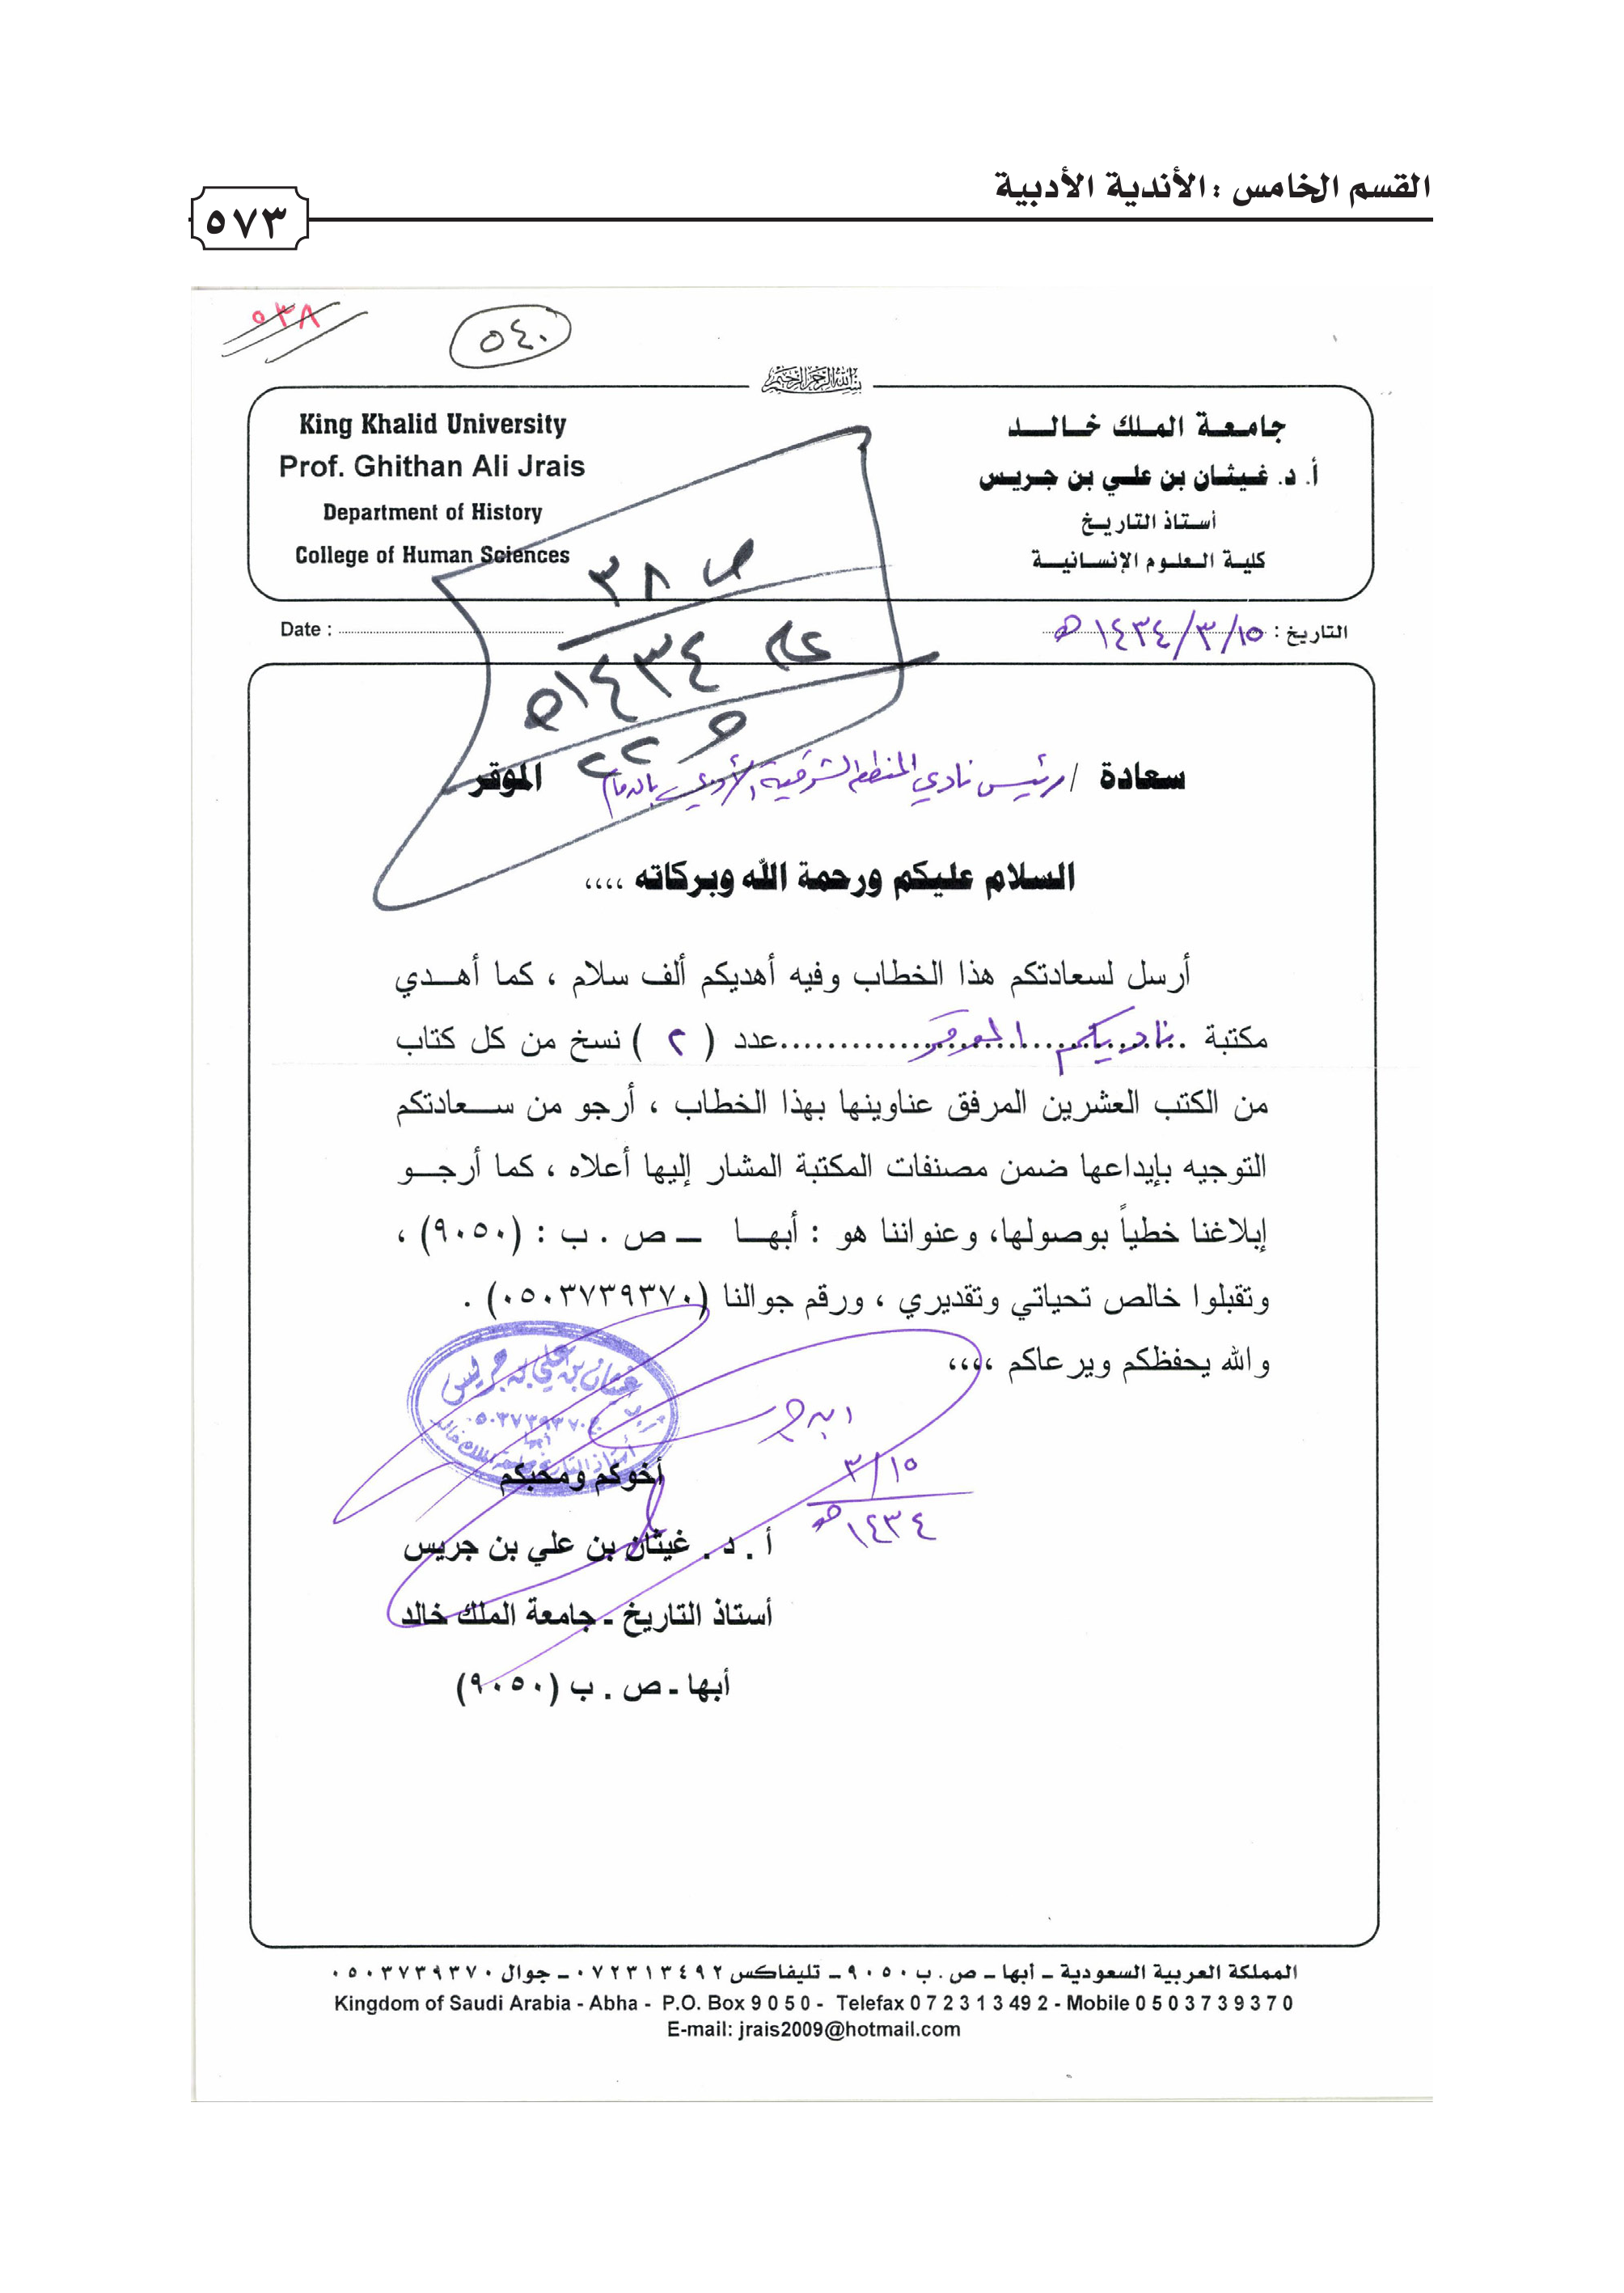 القسم الخامس : الأندية الأدبية
٥٧٣
٥٣٨
٥٤٠
بسم الله الرحمن الرحيم
King Khalid University
Prof. Ghithan Ali Jrais
Department of History
College of Human Sciences
جامعة الملك خالد
أ. د. غيثان بن علي بن جريس
أستاذ التاريخ
كلية العلوم الإنسانية
ص ٣٨
عام ١٤٣٤هـ
Date :
التاريخ : ١٥/٣/١٤٣٤هـ
سعادة / رئيس نادي المنطقة الشرقية الأدبي بالدمام الموقر
السلام عليكم ورحمة الله وبركاته ،،،،
أرسل لسعادتكم هذا الخطاب وفيه أهديكم ألف سلام ، كما أهدي
مكتبة ناديكم الموقر عدد ( ٢ ) نسخ من كل كتاب
من الكتب العشرين المرفق عناوينها بهذا الخطاب ، أرجو من سعادتكم
التوجيه بإيداعها ضمن مصنفات المكتبة المشار إليها أعلاه ، كما أرجو
إبلاغنا خطياً بوصولها، وعنواننا هو : أبها – ص . ب : (٩٠٥٠) ،
وتقبلوا خالص تحياتي وتقديري ، ورقم جوالنا (٠٥٠٣٧٣٩٣٧٠) .
والله يحفظكم ويرعاكم ،،،،
غيثان بن علي بن جريس
٠٥٠٣٧٣٩٣٧٠
أبها
١٥/٣
١٤٣٤هـ
أخوكم ومحبكم
أ . د . غيثان بن علي بن جريس
أستاذ التاريخ - جامعة الملك خالد
أبها - ص . ب (٩٠٥٠)
المملكة العربية السعودية – أبها – ص . ب ٩٠٥٠ – تليفاكس ٠٧٢٣١٣٤٩٢ – جوال ٠٥٠٣٧٣٩٣٧٠
Kingdom of Saudi Arabia - Abha - P.O. Box 9 0 5 0 - Telefax 0 7 2 3 1 3 49 2 - Mobile 0 5 0 3 7 3 9 3 7 0
E-mail: jrais2009@hotmail.com